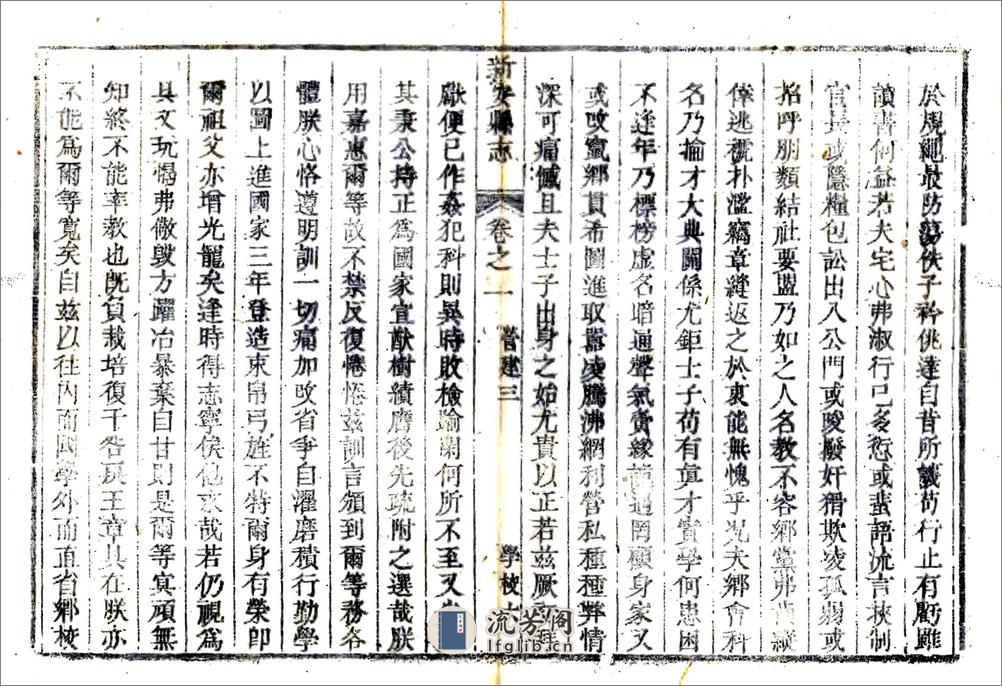 於規繩最防蕩佚子衿佻達自昔所譏苟行止有虧雖
讀書何益若夫宅心弗淑行己多愆或蜚語流言挾制
官長或隱糧包訟出入公門或唆撥奸猾欺凌孤弱或
招呼朋類結社要盟乃如之人名教不容鄉黨弗齒縱
倖逃褫扑濫竊章縫返之於衷能無愧乎況夫鄉會科
名乃掄才大典關係尤鉅士子苟有真才實學何患困
不逢年乃標榜虛名暗通聲氣夤緣詭遇罔顧身家又
或改竄鄉貫希圖進取囂凌騰沸網利營私種種弊情
深可痛憾且夫士子出身之始尤貴以正若茲厥初拜
新安縣志 卷之一 營建三 學校
獻便已作姦犯科則異時敗檢踰閑何所不至又
其秉公持正為國家宣猷樹績膺後先疏附之選哉朕
用嘉惠爾等故不禁反復惓惓茲訓言頒到爾等務各
體朕心恪遵明訓一切痛加改省爭自濯磨積行勤學
以圖上進國家三年登造束帛弓旌不特爾身有榮即
爾祖父亦增光寵矣逢時得志寧俟他求哉若仍視為
具文玩愒弗儆毀方躍冶暴棄自甘則是爾等冥頑無
知終不能率教也既負栽培復干咎戾王章具在朕亦
不能為爾等寬矣自茲以往內而國學外而直省鄉校
流芳閣
lfglib.cn